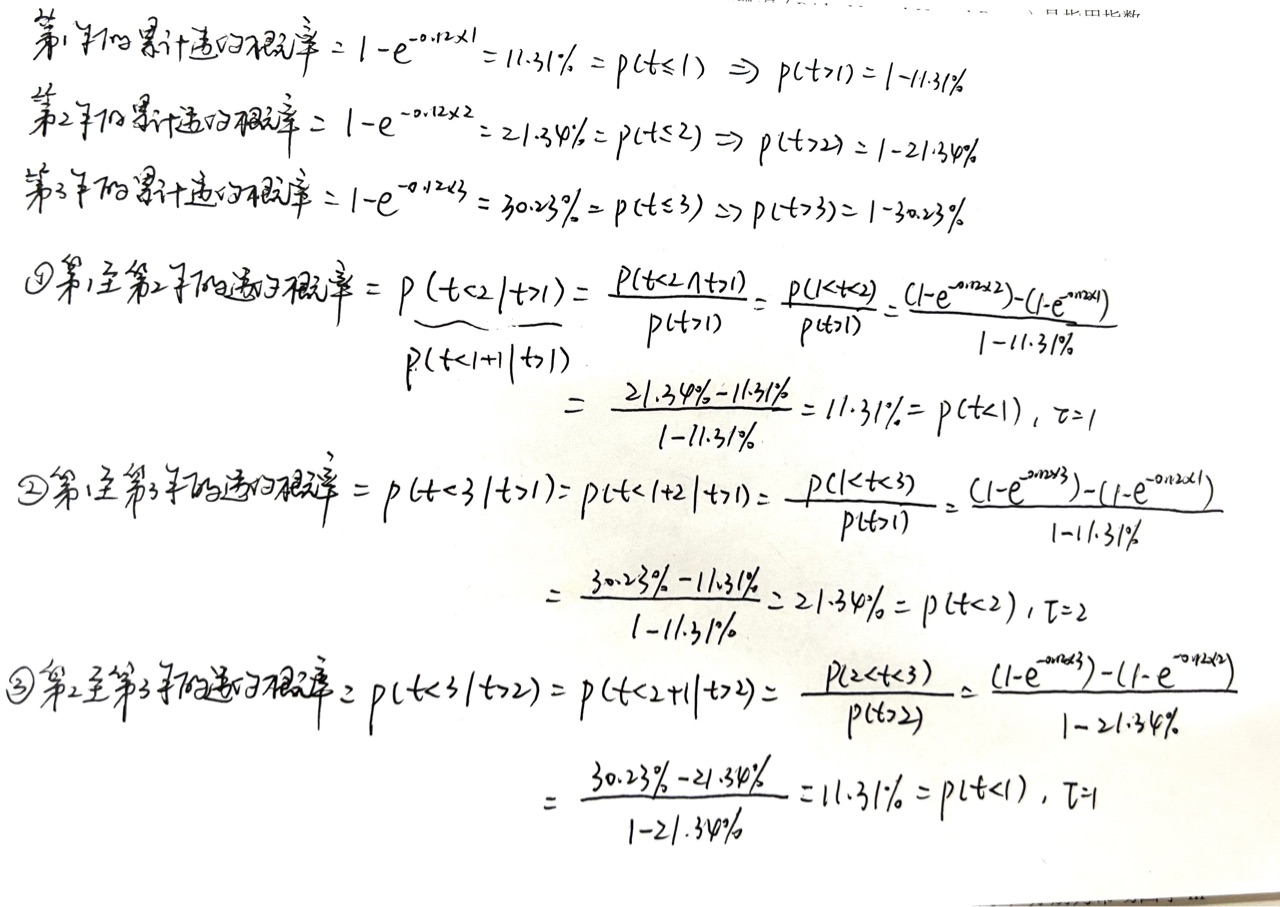 具指用指数
第1年的累计违约概率 = 1-e^{-0.12×1} = 11.31% = p(t≤1) ⇒ p(t>1) = 1-11.31%
第2年的累计违约概率 = 1-e^{-0.12×2} = 21.34% = p(t≤2) ⇒ p(t>2) = 1-21.34%
第3年的累计违约概率 = 1-e^{-0.12×3} = 30.23% = p(t≤3) ⇒ p(t>3) = 1-30.23%
①第1至第2年的违约概率 = p(t<2|t>1) = p(t<2∩t>1)/p(t>1) = p(1<t<2)/p(t>1) = (1-e^{-0.12×2})-(1-e^{-0.12×1})/1-11.31%
p(t<1+1|t>1)
= 21.34%-11.31%/1-11.31% = 11.31% = p(t<1), τ=1
②第1至第3年的违约概率 = p(t<3|t>1) = p(t<1+2|t>1) = p(1<t<3)/p(t>1) = (1-e^{-0.12×3})-(1-e^{-0.12×1})/1-11.31%
= 30.23%-11.31%/1-11.31% = 21.34% = p(t<2), τ=2
③第2至第3年的违约概率 = p(t<3|t>2) = p(t<2+1|t>2) = p(2<t<3)/p(t>2) = (1-e^{-0.12×3})-(1-e^{-0.12×2})/1-21.34%
= 30.23%-21.34%/1-21.34% = 11.31% = p(t<1), τ=1